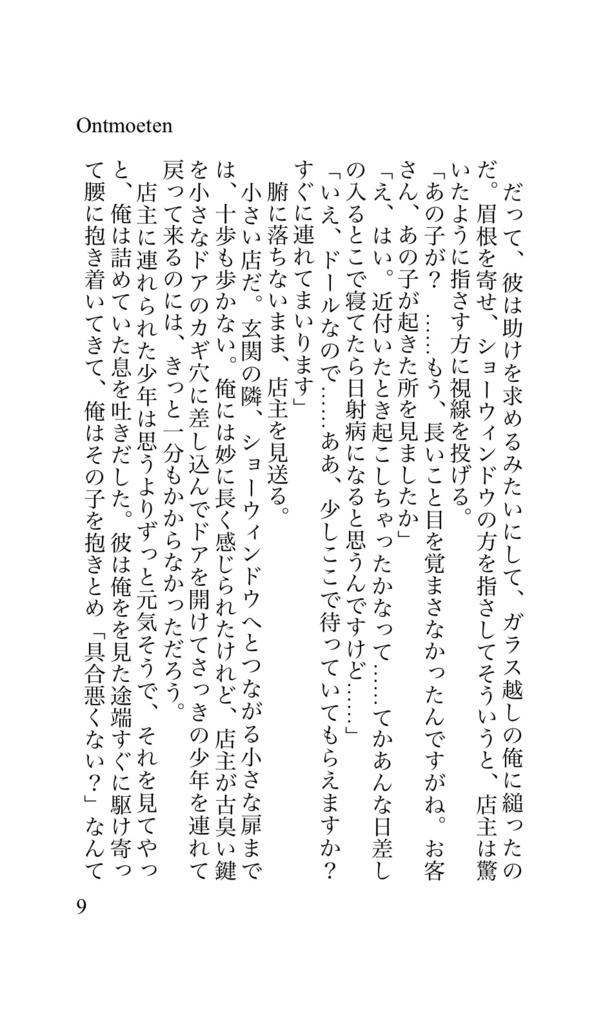 Ontmoeten
だって、彼は助けを求めるみたいにして、ガラス越しの俺に縋ったの
だ。眉根を寄せ、ショーウィンドウの方を指さしてそういうと、店主は驚
いたように指さす方に視線を投げる。
「あの子が？　……もう、長いこと目を覚まさなかったんですがね。お客
さん、あの子が起きた所を見ましたか」
「え、はい。近付いたとき起こしちゃったかなって……てかあんな日差し
の入るとこで寝てたら日射病になると思うんですけど……」
「いえ、ドールなので……ああ、少しここで待っていてもらえますか？
すぐに連れてまいります」
腑に落ちないまま、店主を見送る。
小さい店だ。玄関の隣、ショーウィンドウへとつながる小さな扉まで
は、十歩も歩かない。俺には妙に長く感じられたけれど、店主が古臭い鍵
を小さなドアのカギ穴に差し込んでドアを開けてさっきの少年を連れて
戻って来るのには、きっと一分もかからなかっただろう。
店主に連れられた少年は思うよりずっと元気そうで、それを見てやっ
と、俺は詰めていた息を吐きだした。彼は俺をを見た途端すぐに駆け寄っ
て腰に抱き着いてきて、俺はその子を抱きとめ「具合悪くない？」なんて
9